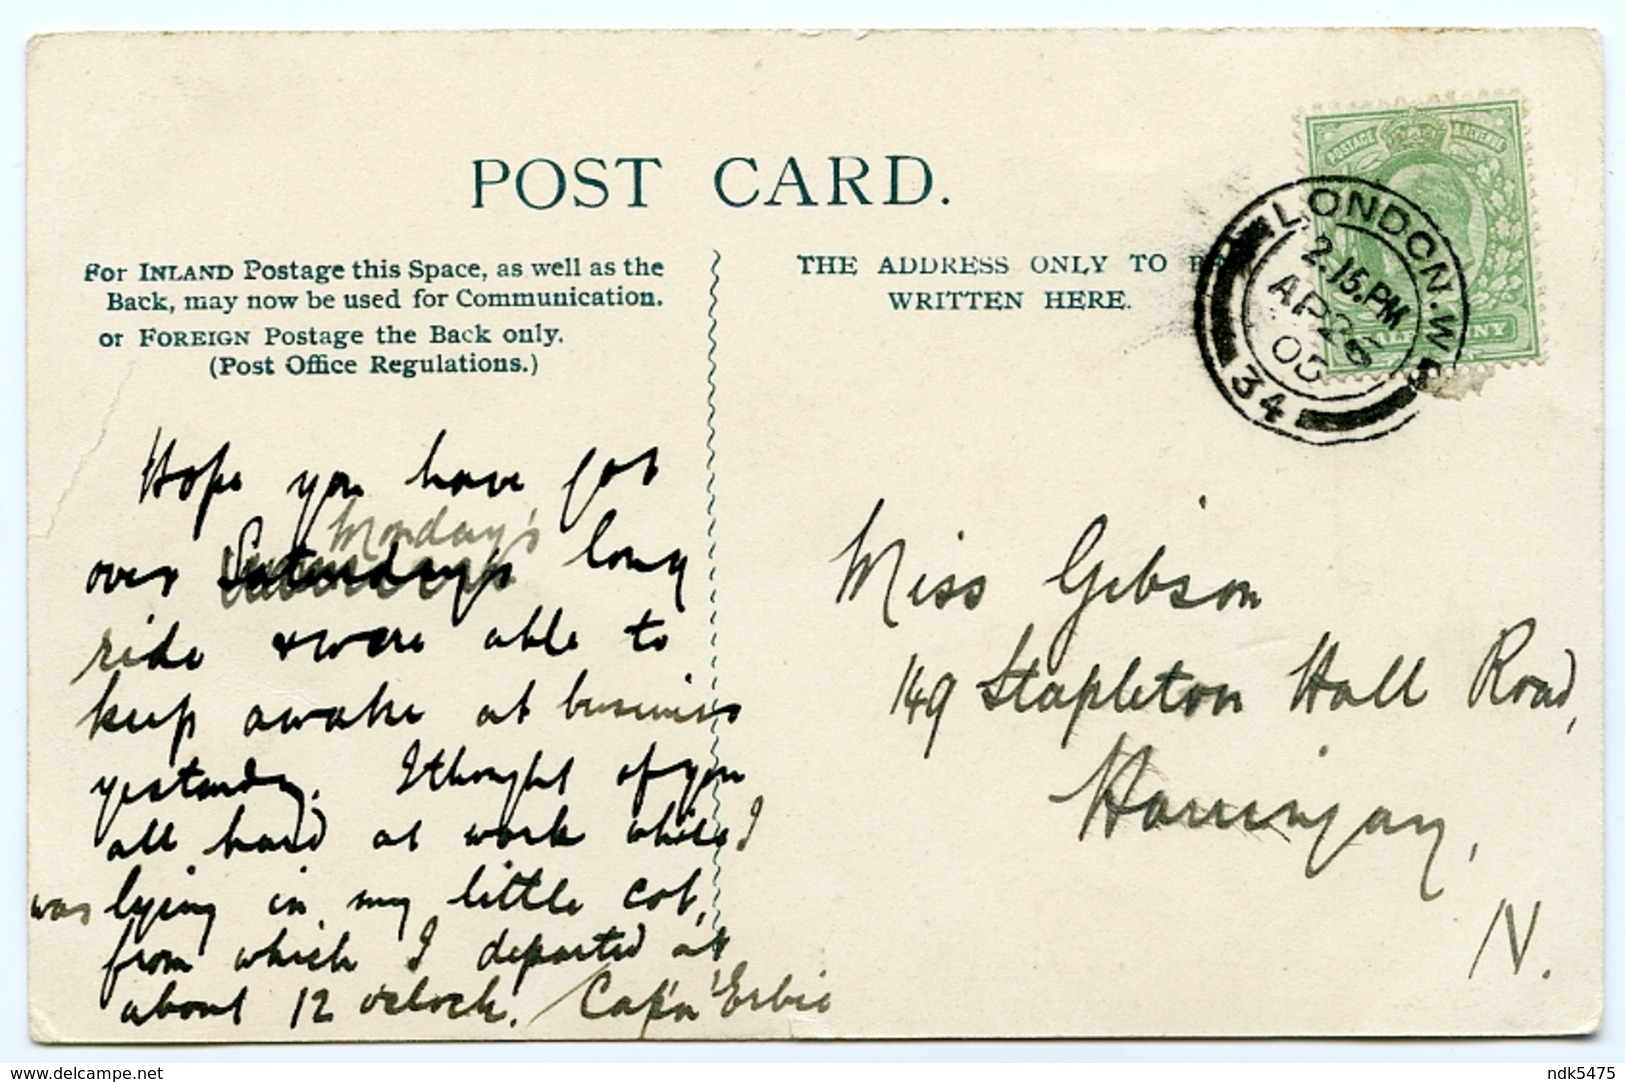 POST CARD.
For INLAND Postage this Space, as well as the
Back, may now be used for Communication.
or FOREIGN Postage the Back only.
(Post Office Regulations.)
THE ADDRESS ONLY TO BE
WRITTEN HERE.
POSTAGE REVENUE
HALFPENNY
LONDON. W
2.15.PM
AP 26
05
34
Hope you have got
Monday's
over Saturday's long
ride & were able to
keep awake at business
yesterday. I thought of you
all hard at work while I
was lying in my little cot,
from which I departed at
about 12 o'clock. Cap'n 'Erbie
Miss Gibson
149 Stapleton Hall Road,
Harringay,
N.
www.delcampe.net
ndk5475